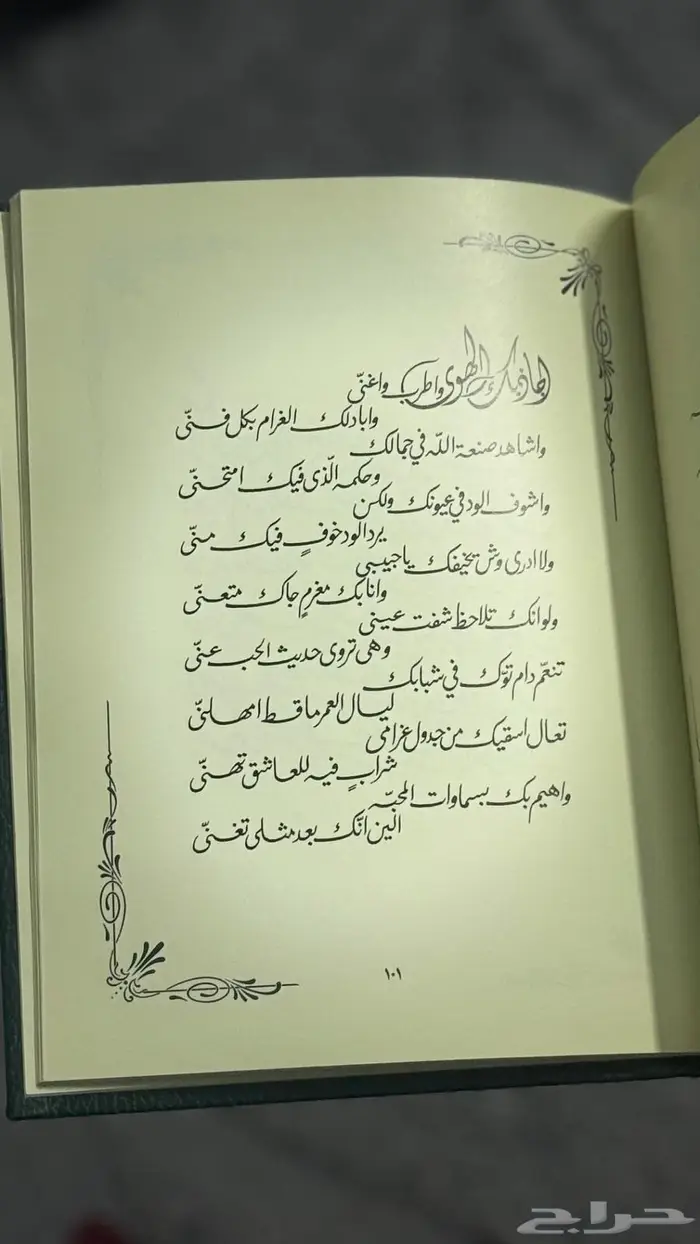 اجاذبك الهوى واطرب واغنّي
وابادلك الغرام بكل فنّي
واشاهد صنعة اللّه في جمالك
وحكمه الّذي فيك امتحنّي
واشوف الود في عيونك ولكن
يرد الود خوفٍ فيك منّي
ولا ادري وش يخيفك يا حبيبي
وانا بك مغرمٍ جاك متعنّي
ولو انك تلاحظ شفت عيني
وهي تروي حديث الحب عنّي
تنعّم دام توّك في شبابك
ليال العمر ما قط امهلنّي
تعال اسقيك من جدول غرامي
شرابٍ فيه للعاشق تهنّي
واهيم بك بسماوات المحبّه
الين انّك بعد مثلي تغنّي
١٠١
حراج